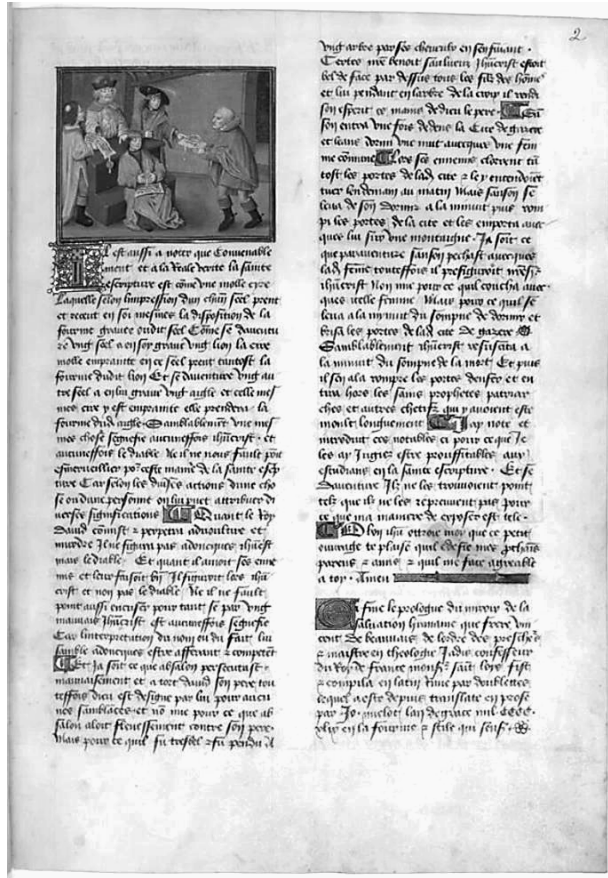 Il est aussi a noter que Convenable
ment et a la Reale verite la sainte
escripture est cõme vne molle cyre
Laquelle selon limpression dun chũn seel prent
et recoit en soi mesmes la disposition de la
fourme grauee oudit seel Cõme se dauentu
re vng seel a en soy graue vng lion la cire
molle emprainte en ce seel prent tantost la
fourme dudit lion Et se dauenture vng au
tre seel a en lui graue vng aigle et celle mes
mes cire y est emprainte elle prendera la
fourme dud aigle Samblablemẽt vne mes
mes chose segnefie aucuneffois ihũcrist et
aucuneffois le diable Ne il ne nous fault poĩt
esmerueillier por ceste maniẽ de la sainte escrp
ture Car selon les diũses actions dune cho
se ou dune personne on lui puet attribuer di
verses significations Quant le Roy
Dauid cõmist et perpetra aduoultire et
murdre Il ne figura pas adoncques ihũcrist
mais le diable Et quant il amoit ses enne
mis et leur faisoit biẽ Il figuroit lors ihũ
crist et non pas le diable Ne il ne fault
point aussi encuser pour tant se par vng
mauuais ihũcrist est aucuneffois segnefie
Car linterpretation du nom ou du fait lui
samble adoncques estre afferant et competẽt
Et Ja soit ce que absalon persecutast
mauuaisement et a tort dauid son pere tou
teffois dieu est designe par lui pour aucu
nes samblãces et nõ mie pour ce que ab
salon aloit fleuissement contre son pere
Mais pour ce quil fu tresbel et fu pendu a
2
vng arbre par ses cheueulx en sen fuiant
Certes nrẽ benoit sauueur Ihũcrist estoit
bel de face par dessus tous les filz des hõmes
et lui pendant en larbre de la croix il rendi
son esperit es mains de dieu le pere San
son entra vne fois dedens la Cite de gazere
et leans dormi vne nuit auecques vne fem
me cõmune Lors ses ennemis clorrent tã
tost les portes de lad cite et le y entendoiẽt
tuer lendemain au matin Mais sanson se
leua de son Dormir a la minuit puis rom
pi les portes de la cite et les emporta auec
ques lui sur vne montaigne Ja soit ce
que parauenture sanson pechast auecques
lad feme touteffois il prefiguroit
ihũcrist Non mie pour ce quil coucha auec
ques icelle femme Mais pour ce quil se
leua a la mynuit du sompne de dormir et
brisa les portes de lad cite De gazere
Samblablement ihũcrist resuscita a
la minuit du sompne de la mort Et puis
il sen ala rompre les portes denfer et en
tira hors les sains prophetes patriar
ches et autres chetifz qui y auoient este
moult longuement Jay note et
introduit ces notables ci pour ce que Je
les ay Jugiez estre prouffitables aux
estudians en la sainte escripture Et se
Dauenture Ilz ne les trouuoient point
telz que ilz ne les repreuuent pas pour
ce que ma maniere de exposer est tele
O boy ihũ ottroie moy que ce petit
ouurage te plaise quil edefie mes
parens et amis et quil me face agreable
a toy Amen
Cy fine le prologue du miroir de la
saluation humaine que frere vin
cent de beauuais de lordre des preschers
et maistre en theologie Jadis confesseur
du Roy de france monsr saint loys fist
et compila en latin Rime par doublettes
lequel a este depuis translate en prose
par Jo. mielot lan de grace mil CCCC
xlix en la fourme et stile qui senst